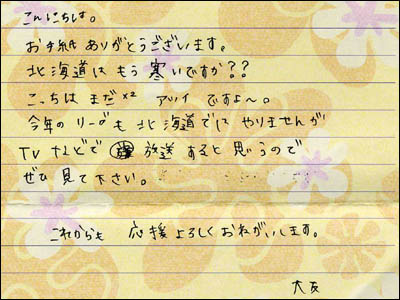 こんにちは。
お手紙ありがとうございます。
北海道はもう寒いですか??
こっちはまだ×2 アツイ ですよ～。
今年のリーグも北海道ではやりませんが
TVなどで 放送すると思うので
ぜひ見て下さい。
これからも 応援よろしくおねがいします。
大友